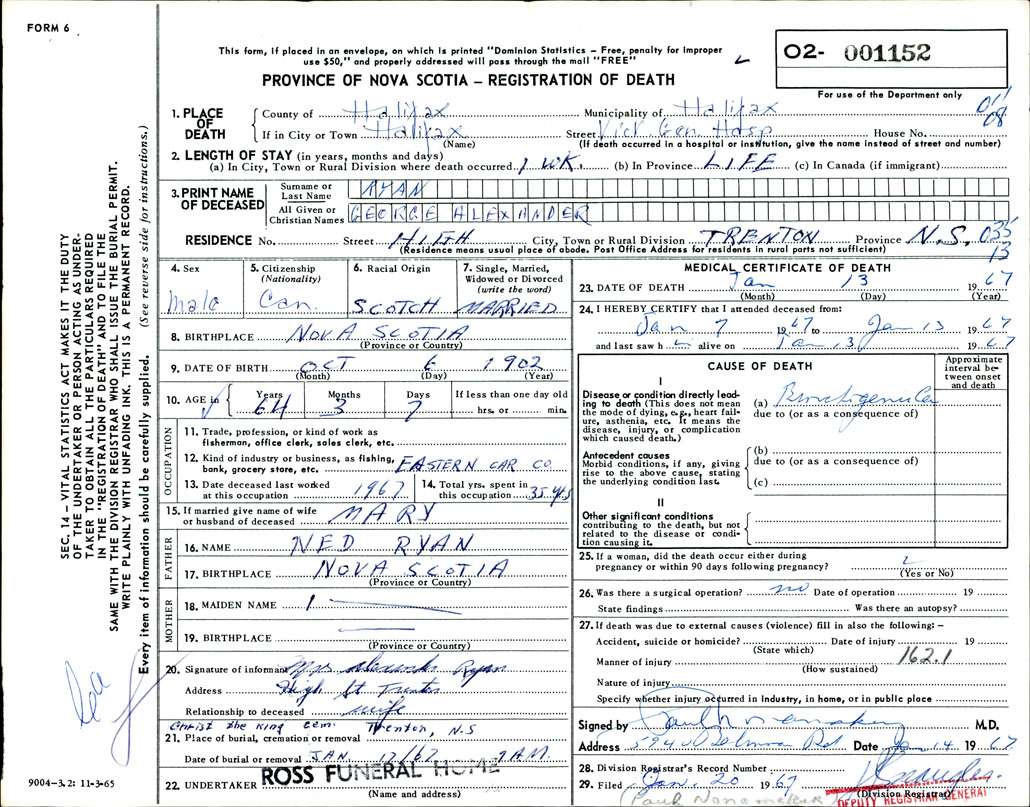 FORM 6
This form, if placed in an envelope, on which is printed "Dominion Statistics – Free, penalty for improper
use $50," and properly addressed will pass through the mail "FREE"
O2- 001152
For use of the Department only
PROVINCE OF NOVA SCOTIA – REGISTRATION OF DEATH
1. PLACE OF DEATH
County of Halifax Municipality of Halifax 011
08
If in City or Town Halifax Street Vict Gen Hosp House No.
(Name) (If death occurred in a hospital or institution, give the name instead of street and number)
2. LENGTH OF STAY (in years, months and days)
(a) In City, Town or Rural Division where death occurred 1 WK. (b) In Province LIFE (c) In Canada (if immigrant)
3. PRINT NAME OF DECEASED
Surname or Last Name RYAN
All Given or Christian Names GEORGE ALEXANDER
RESIDENCE No. Street HIGH City, Town or Rural Division TRENTON Province N.S. 035
13
(Residence means usual place of abode. Post Office Address for residents in rural parts not sufficient)
4. Sex Male
5. Citizenship (Nationality) Can.
6. Racial Origin SCOTCH
7. Single, Married, Widowed or Divorced (write the word) MARRIED
8. BIRTHPLACE NOVA SCOTIA
(Province or Country)
9. DATE OF BIRTH OCT 6 1902
(Month) (Day) (Year)
10. AGE in Years 64 Months 3 Days 7 If less than one day old
hrs. or min.
OCCUPATION
11. Trade, profession, or kind of work as fisherman, office clerk, sales clerk, etc.
12. Kind of industry or business, as fishing, bank, grocery store, etc. EASTERN CAR CO
13. Date deceased last worked at this occupation 1967
14. Total yrs. spent in this occupation 35 yrs
15. If married give name of wife or husband of deceased MARY
FATHER
16. NAME NED RYAN
17. BIRTHPLACE NOVA SCOTIA
(Province or Country)
MOTHER
18. MAIDEN NAME
19. BIRTHPLACE
(Province or Country)
20. Signature of informant Mrs Alexander Ryan
Address High St Trenton
Relationship to deceased wife
Christ the King Cem. Trenton, N.S
21. Place of burial, cremation or removal
Date of burial or removal JAN /67 9 A.M.
22. UNDERTAKER ROSS FUNERAL HOME
(Name and address)
MEDICAL CERTIFICATE OF DEATH
23. DATE OF DEATH Jan 13 1967
(Month) (Day) (Year)
24. I HEREBY CERTIFY that I attended deceased from:
Jan 7 1967 to Jan 13 1967
and last saw h im alive on Jan 13 1967
CAUSE OF DEATH
Approximate interval between onset and death
I
Disease or condition directly leading to death (This does not mean the mode of dying, e.g., heart failure, asthenia, etc. It means the disease, injury, or complication which caused death.)
(a)
due to (or as a consequence of)
Antecedent causes
Morbid conditions, if any, giving rise to the above cause, stating the underlying condition last.
(b)
due to (or as a consequence of)
(c)
II
Other significant conditions
contributing to the death, but not related to the disease or condition causing it.
25. If a woman, did the death occur either during
pregnancy or within 90 days following pregnancy?
(Yes or No)
26. Was there a surgical operation? no Date of operation 19
State findings Was there an autopsy?
27. If death was due to external causes (violence) fill in also the following: –
Accident, suicide or homicide? Date of injury 19
(State which)
Manner of injury 162.1
(How sustained)
Nature of injury
Specify whether injury occurred in Industry, in home, or in public place
Signed by M.D.
Address Rd Date Jan 14 1967
28. Division Registrar's Record Number
29. Filed Jan. 20 1967
(Division Registrar)
DEPUTY REGISTRAR GENERAL
SEC. 14 – VITAL STATISTICS ACT MAKES IT THE DUTY
OF THE UNDERTAKER OR PERSON ACTING AS UNDER-
TAKER TO OBTAIN ALL THE PARTICULARS REQUIRED
IN THE "REGISTRATION OF DEATH" AND TO FILE THE
SAME WITH THE DIVISION REGISTRAR WHO SHALL ISSUE THE BURIAL PERMIT.
WRITE PLAINLY WITH UNFADING INK. THIS IS A PERMANENT RECORD.
Every item of information should be carefully supplied. (See reverse side for instructions.)
9004–3.2: 11-3-65